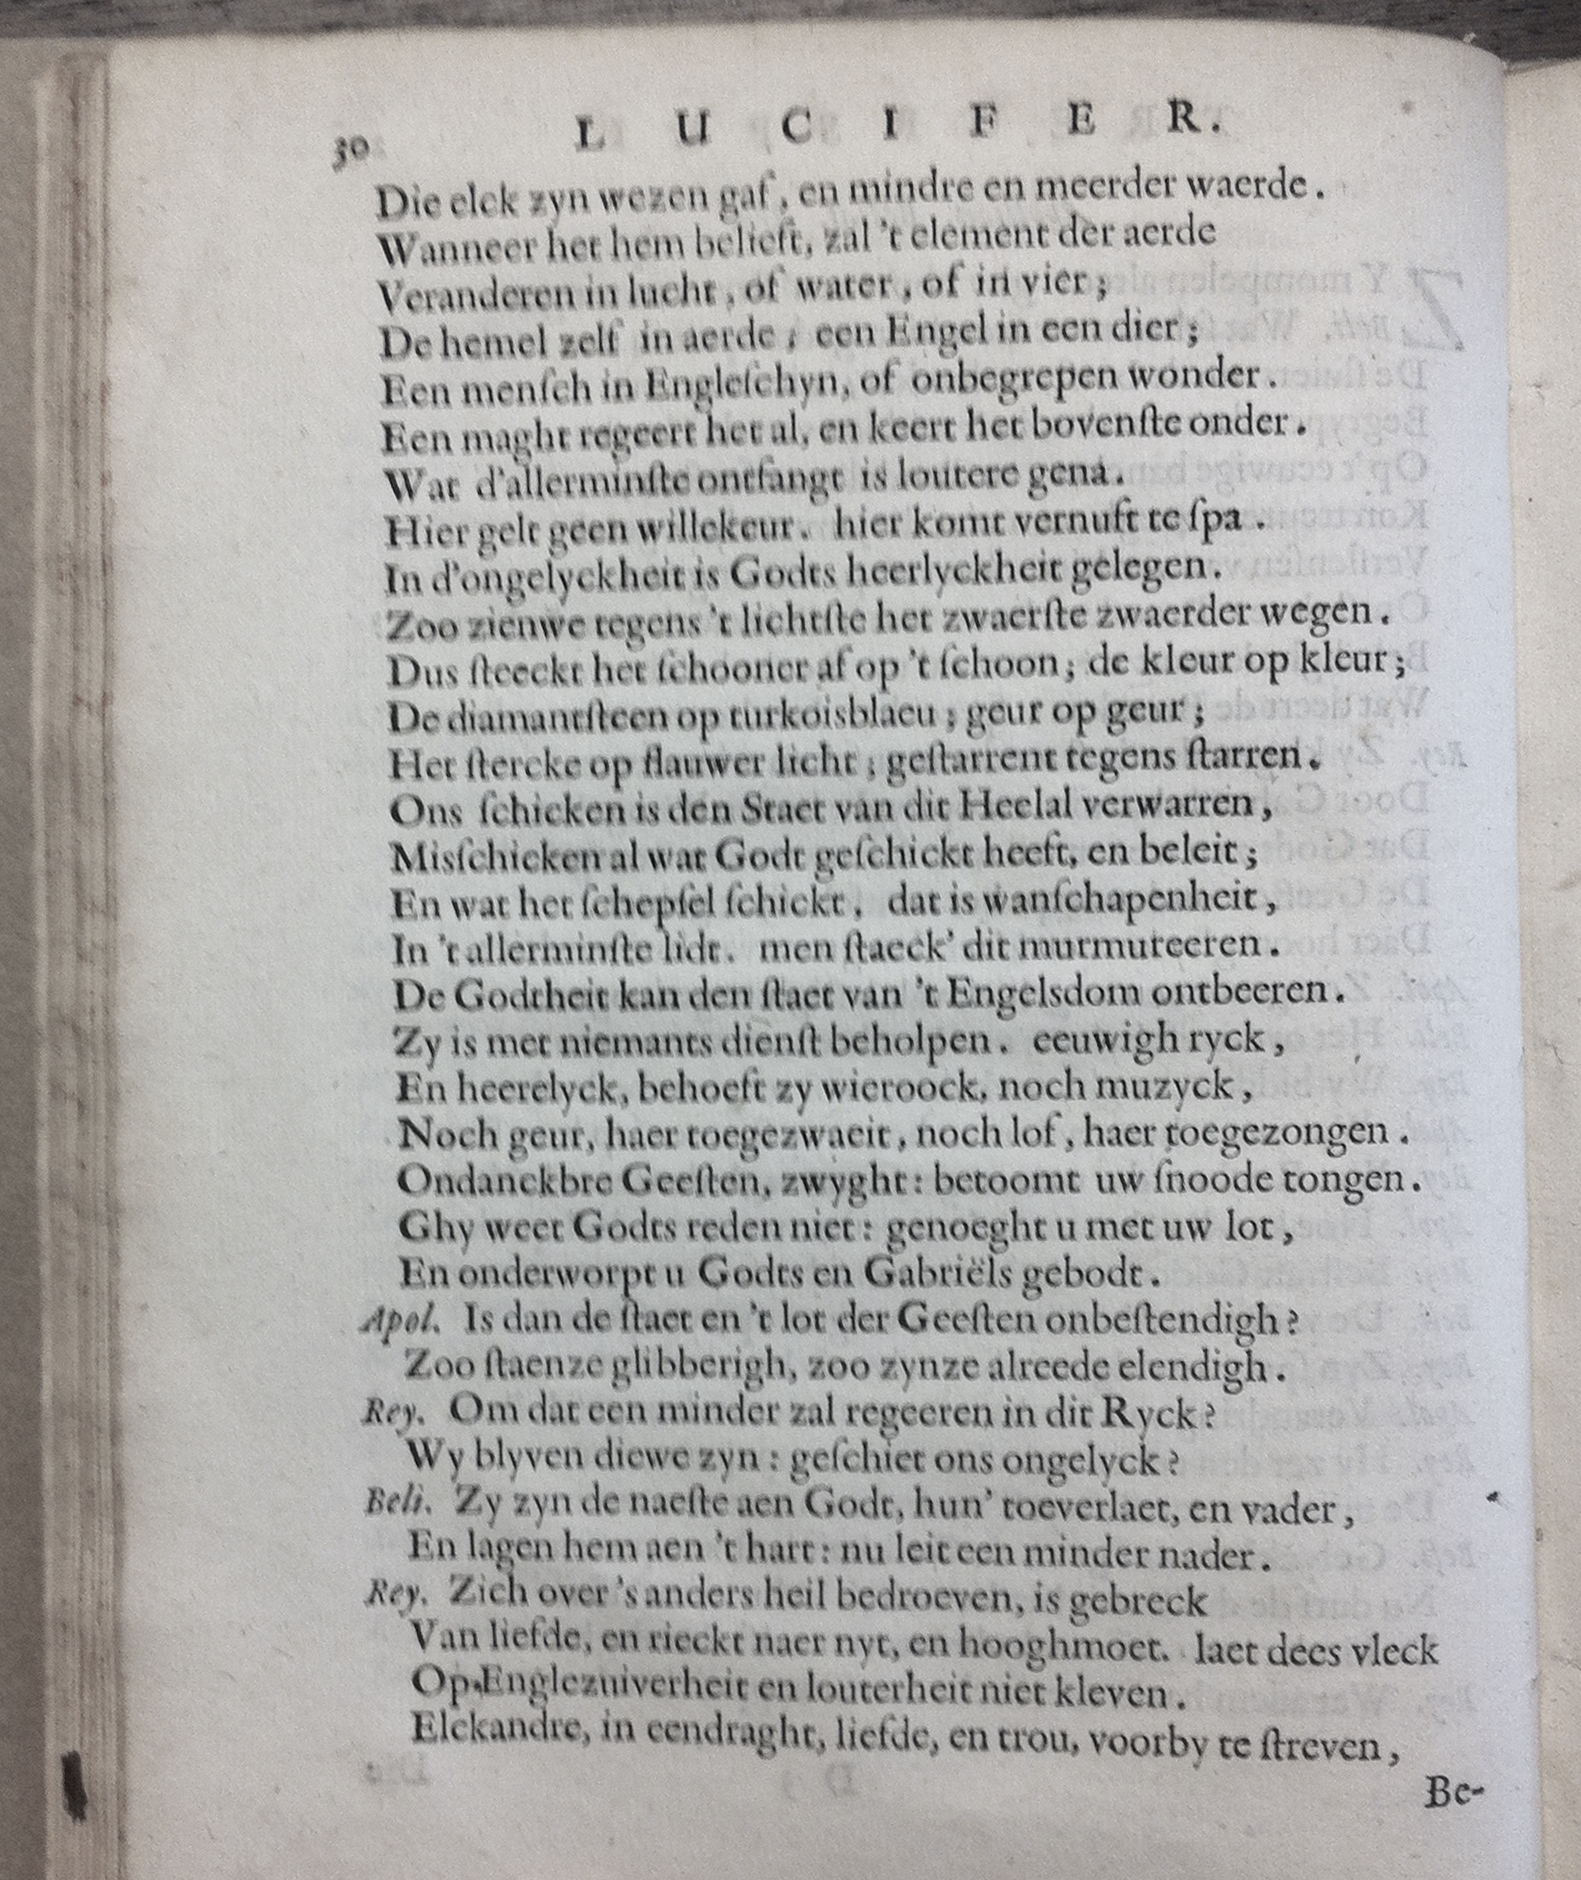 30 LUCIFER.
Die elck zyn wezen gaf, en mindre en meerder waerde.
Wanneer het hem belieft, zal 't element der aerde
Veranderen in lucht, of water, of in vier;
De hemel zelf in aerde; een Engel in een dier;
Een menſch in Engleſchyn, of onbegrepen wonder.
Een maght regeert het al, en keert het bovenſte onder.
Wat d'allerminſte ontfangt is loutere genà.
Hier gelt geen willekeur. hier komt vernuft te ſpa.
In d'ongelyckheit is Godts heerlyckheit gelegen.
Zoo zienwe tegens 't lichtſte het zwaerſte zwaerder wegen.
Dus ſteeckt het ſchooner af op 't ſchoon; de kleur op kleur;
De diamantſteen op turkoisblaeu; geur op geur;
Het ſtercke op flauwer licht; geſtarrent tegens ſtarren.
Ons ſchicken is den Staet van dit Heelal verwarren,
Misſchicken al wat Godt geſchickt heeft, en beleit;
En wat het ſchepſel ſchickt, dat is wanſchapenheit,
In 't allerminſte lidt. men ſtaeck' dit murmureeren.
De Godtheit kan den ſtaet van 't Engelsdom ontbeeren.
Zy is met niemants dienſt beholpen. eeuwigh ryck,
En heerelyck, behoeft zy wieroock, noch muzyck,
Noch geur, haer toegezwaeit, noch lof, haer toegezongen.
Ondanckbre Geeſten, zwyght: betoomt uw ſnoode tongen.
Ghy weet Godts reden niet: genoeght u met uw lot,
En onderworpt u Godts en Gabriëls gebodt.
Apol. Is dan de ſtaet en 't lot der Geeſten onbeſtendigh?
Zoo ſtaenze glibberigh, zoo zynze alreede elendigh.
Rey. Om dat een minder zal regeeren in dit Ryck?
Wy blyven diewe zyn: geſchiet ons ongelyck?
Beli. Zy zyn de naeſte aen Godt, hun' toeverlaet, en vader,
En lagen hem aen 't hart: nu leit een minder nader.
Rey. Zich over 's anders heil bedroeven, is gebreck
Van liefde, en rieckt naer nyt, en hooghmoet. laet dees vleck
Op Englezuiverheit en louterheit niet kleven.
Elckandre, in eendraght, liefde, en trou, voorby te ſtreven,
Be-